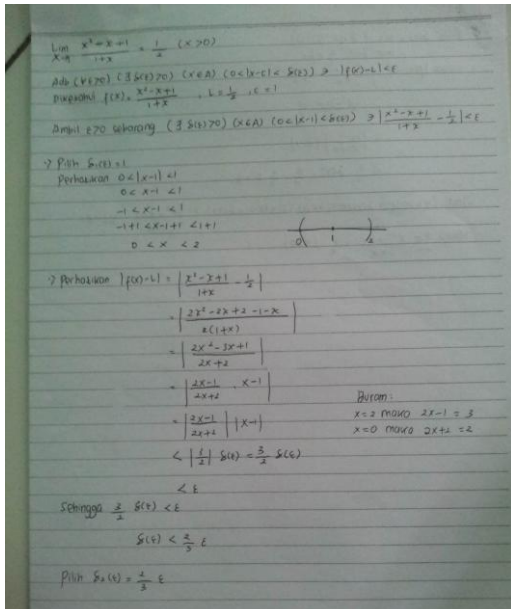 Lim x→1 (x² - x + 1)/(1+x) = 1/2 (x > 0)
Adb (∀ε>0) (∃ δ(ε)>0) (x∈A) (0<|x-c|< δ(ε)) ⇒ |f(x)-L|<ε
Diketahui f(x) = (x²-x+1)/(1+x) , L = 1/2 , c = 1
Ambil ε>0 sebarang (∃ δ(ε)>0) (x∈A) (0<|x-1|<δ(ε)) ⇒ |(x²-x+1)/(1+x) - 1/2| < ε
-> Pilih δ₁(ε) = 1
Perhatikan 0<|x-1|<1
0 < x-1 < 1
-1 < x-1 < 1
-1+1 < x-1+1 < 1+1
0 < x < 2
0 1 2
-> Perhatikan |f(x)-L| = |(x²-x+1)/(1+x) - 1/2|
= |(2x²-2x+2-1-x)/(2(1+x))|
= |(2x²-3x+1)/(2x+2)|
= |(2x-1)/(2x+2) . x-1|
= |(2x-1)/(2x+2)| |x-1|
< |3/2| δ(ε) = 3/2 δ(ε)
< ε
Buram:
x=2 maka 2x-1 = 3
x=0 maka 2x+2 = 2
Sehingga 3/2 δ(ε) < ε
δ(ε) < 2/3 ε
Pilih δ₂(ε) = 2/3 ε